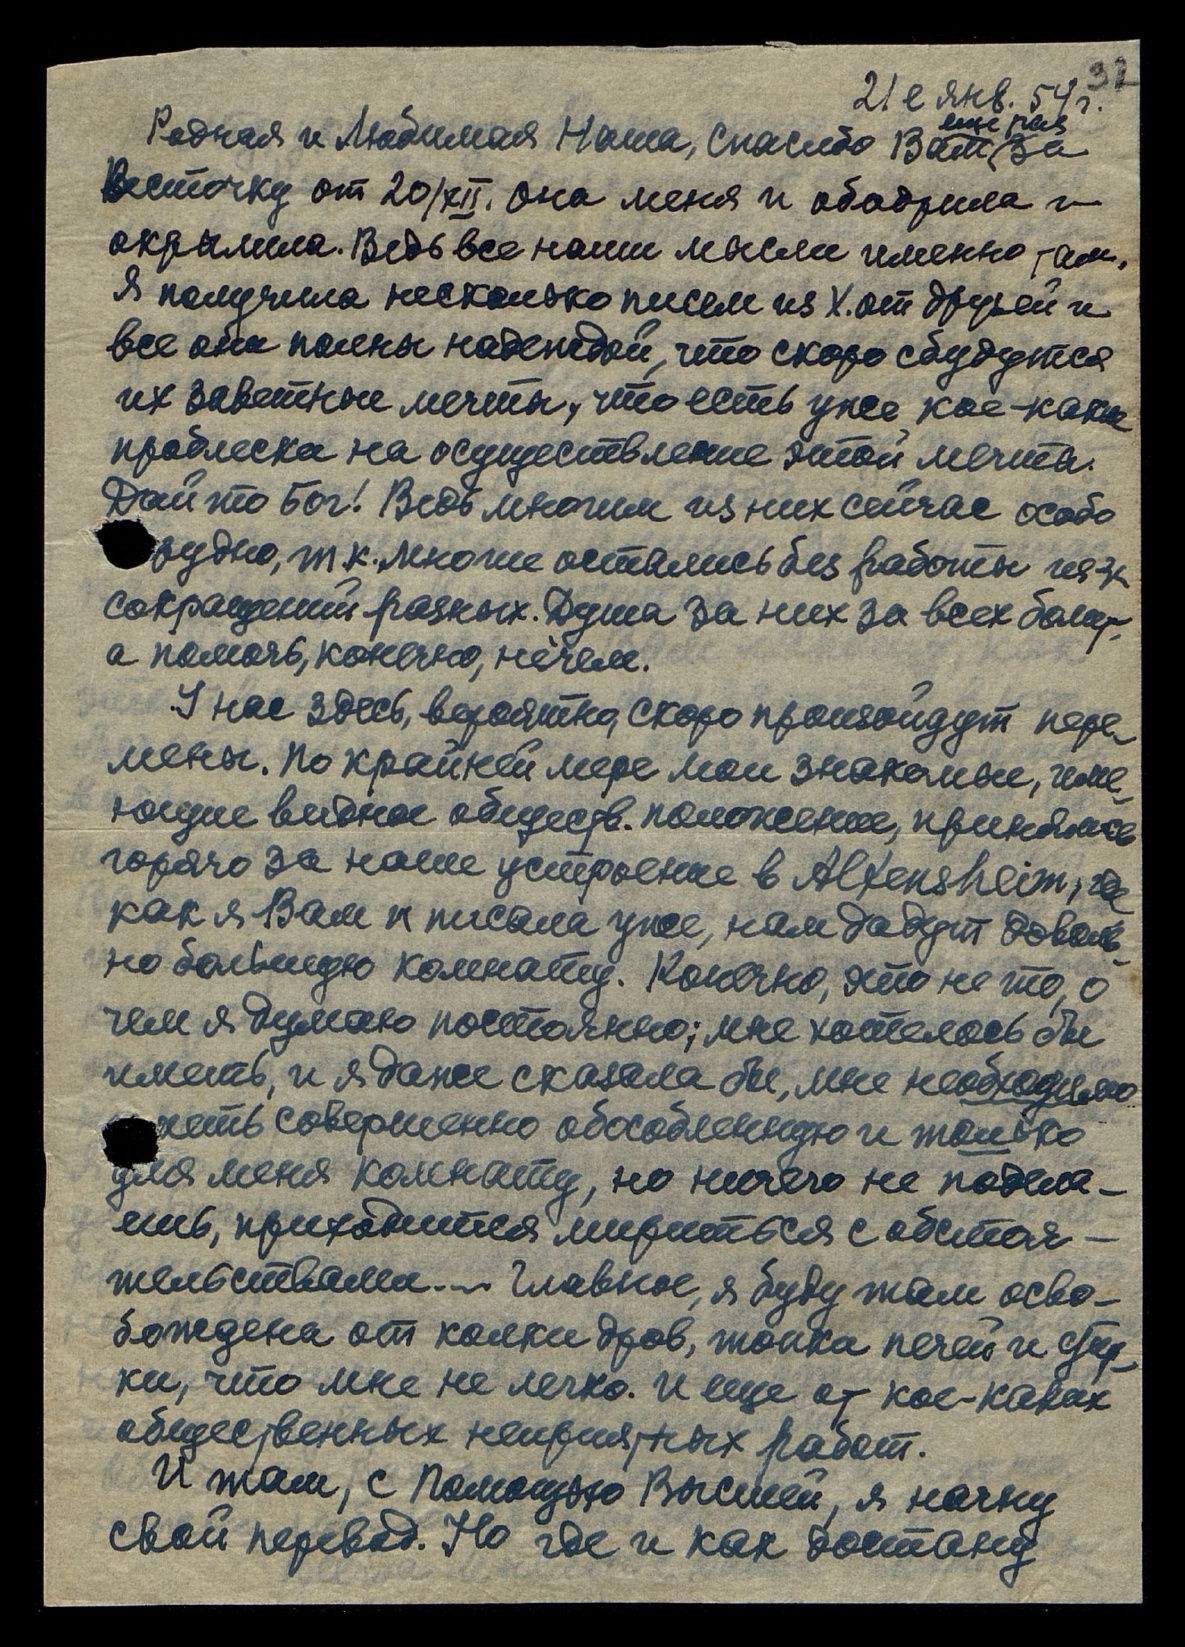 32
21 е янв. 54 г.
Родная и Любимая Наша, Спасибо Вам еще раз за
Весточку от 20/XII. Она меня и ободрила и
окрылила. Ведь все наши мысли именно там.
Я получила несколько писем из Х. от друзей и
все они полны надеждой, что скоро сбудутся
их заветные мечты, что есть уже кое-какие
проблески на осуществление этой мечты.
Дай то Бог! Ведь многим из них сейчас особо
рудно, т.к. многие остались без работы из за
сокращений разных. Душа за них за всех болит,
а помочь, конечно, нечем.
У нас здесь, вероятно, скоро произойдут пере-
мены. По крайней мере мои знакомые, име-
ющие видное обществ. положение, принялись
горячо за наше устроение в Alxensheim, где
как я Вам писала уже, нам дадут доволь-
но большую комнату. Конечно, это не то, о
чем я думаю постоянно; мне хотелось бы
иметь, и я даже сказала бы, мне необходимо
меть совершенно обособленную и только
для меня комнату, но ничего не подела-
ешь, приходится мириться с обстоя-
тельствами.... Главное, я буду там осво-
бождена от колки дров, топки печей и стир-
ки, что мне не легко. И еще от кое-каких
общественных неприятных работ.
И там, с Помощью Высшей, я начну
свой перевод. Но где и как достану